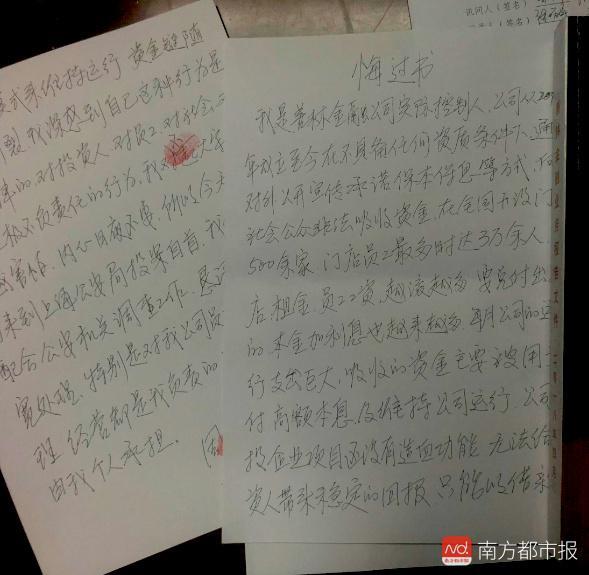 讯问人（签名）
悔过书
我是善林金融公司实际控制人，公司从
年成立至今在不具备任何资质条件下，通
对外公开宣传承诺保本保息等方式，向
社会公众非法吸收资金，在全国开设门
500余家，门店员工最多时达3万余人，
店租金，员工工资，越滚越多，要兑付出
的本金加利息也越来越多，每月公司的运
行支出巨大，吸收的资金主要被用
付高额本息，及维持公司运行，公司
投企业项目还没有造血功能，无法给
资人带来稳定的回报，只能以借来
式来维持运行，资金链随
裂，我深感到自己这种行为是
的，对投资人，对员工，对社会
极不负责任的行为，我
害怕，内心日夜不安，所以今天
来到上海公安局投案自首，我
配合公安机关调查工作，
宽处理，特别是对我公司员
经营都是我负责的
由我个人承担。
南方都市报